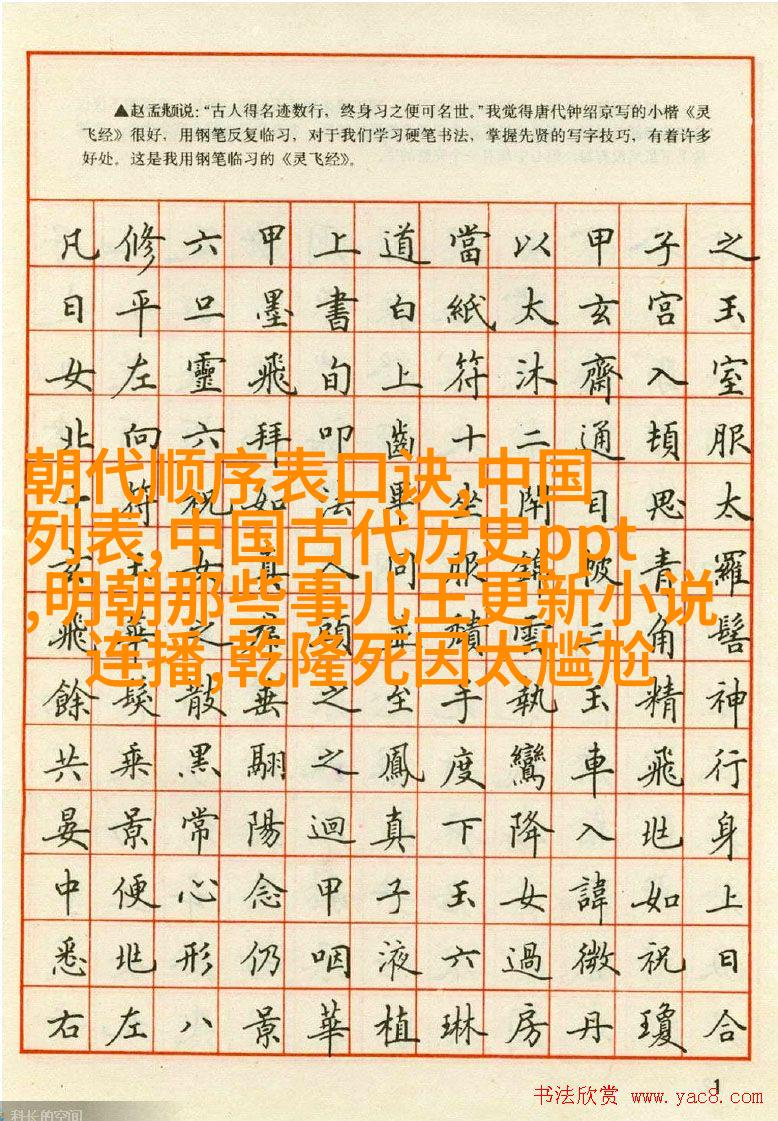 ▲赵孟頫说：“古人得名迹数行，终身习之便可名世。”我觉得唐代钟绍京写的小楷《灵
飞经》很好，用钢笔反复临习，对于我们学习硬笔书法，掌握先贤的写字技巧，有着许多
好处。这是我用钢笔临习的《灵飞经》。
凡修六甲上道當以甲子之
日平旦墨書白紙太玄宮玉
女左靈飛旬上符沐齋入室
北向六拜叩齒十二通頓服
十符祝如法畢坐閉目思太
朝代顺序表口诀,中国
列表,中国古代历史ppt
,明朝那些事儿王更新小说
连播,乾隆死因太尴尬
玄玉女真人同服錦帔青羅
飛華之頭並頹雲三角髻
餘髮散垂之至手執玉精神
共乘黑翮之鳳度鸞車飛行
晏景常陽迴真下降入兆身
中便心念甲子玉女諱如上
悉兆形仍咽液六過微祝日
右左八景華植琳房丹瓊合
1
书法欣赏 www.yac8.com
科长的空间